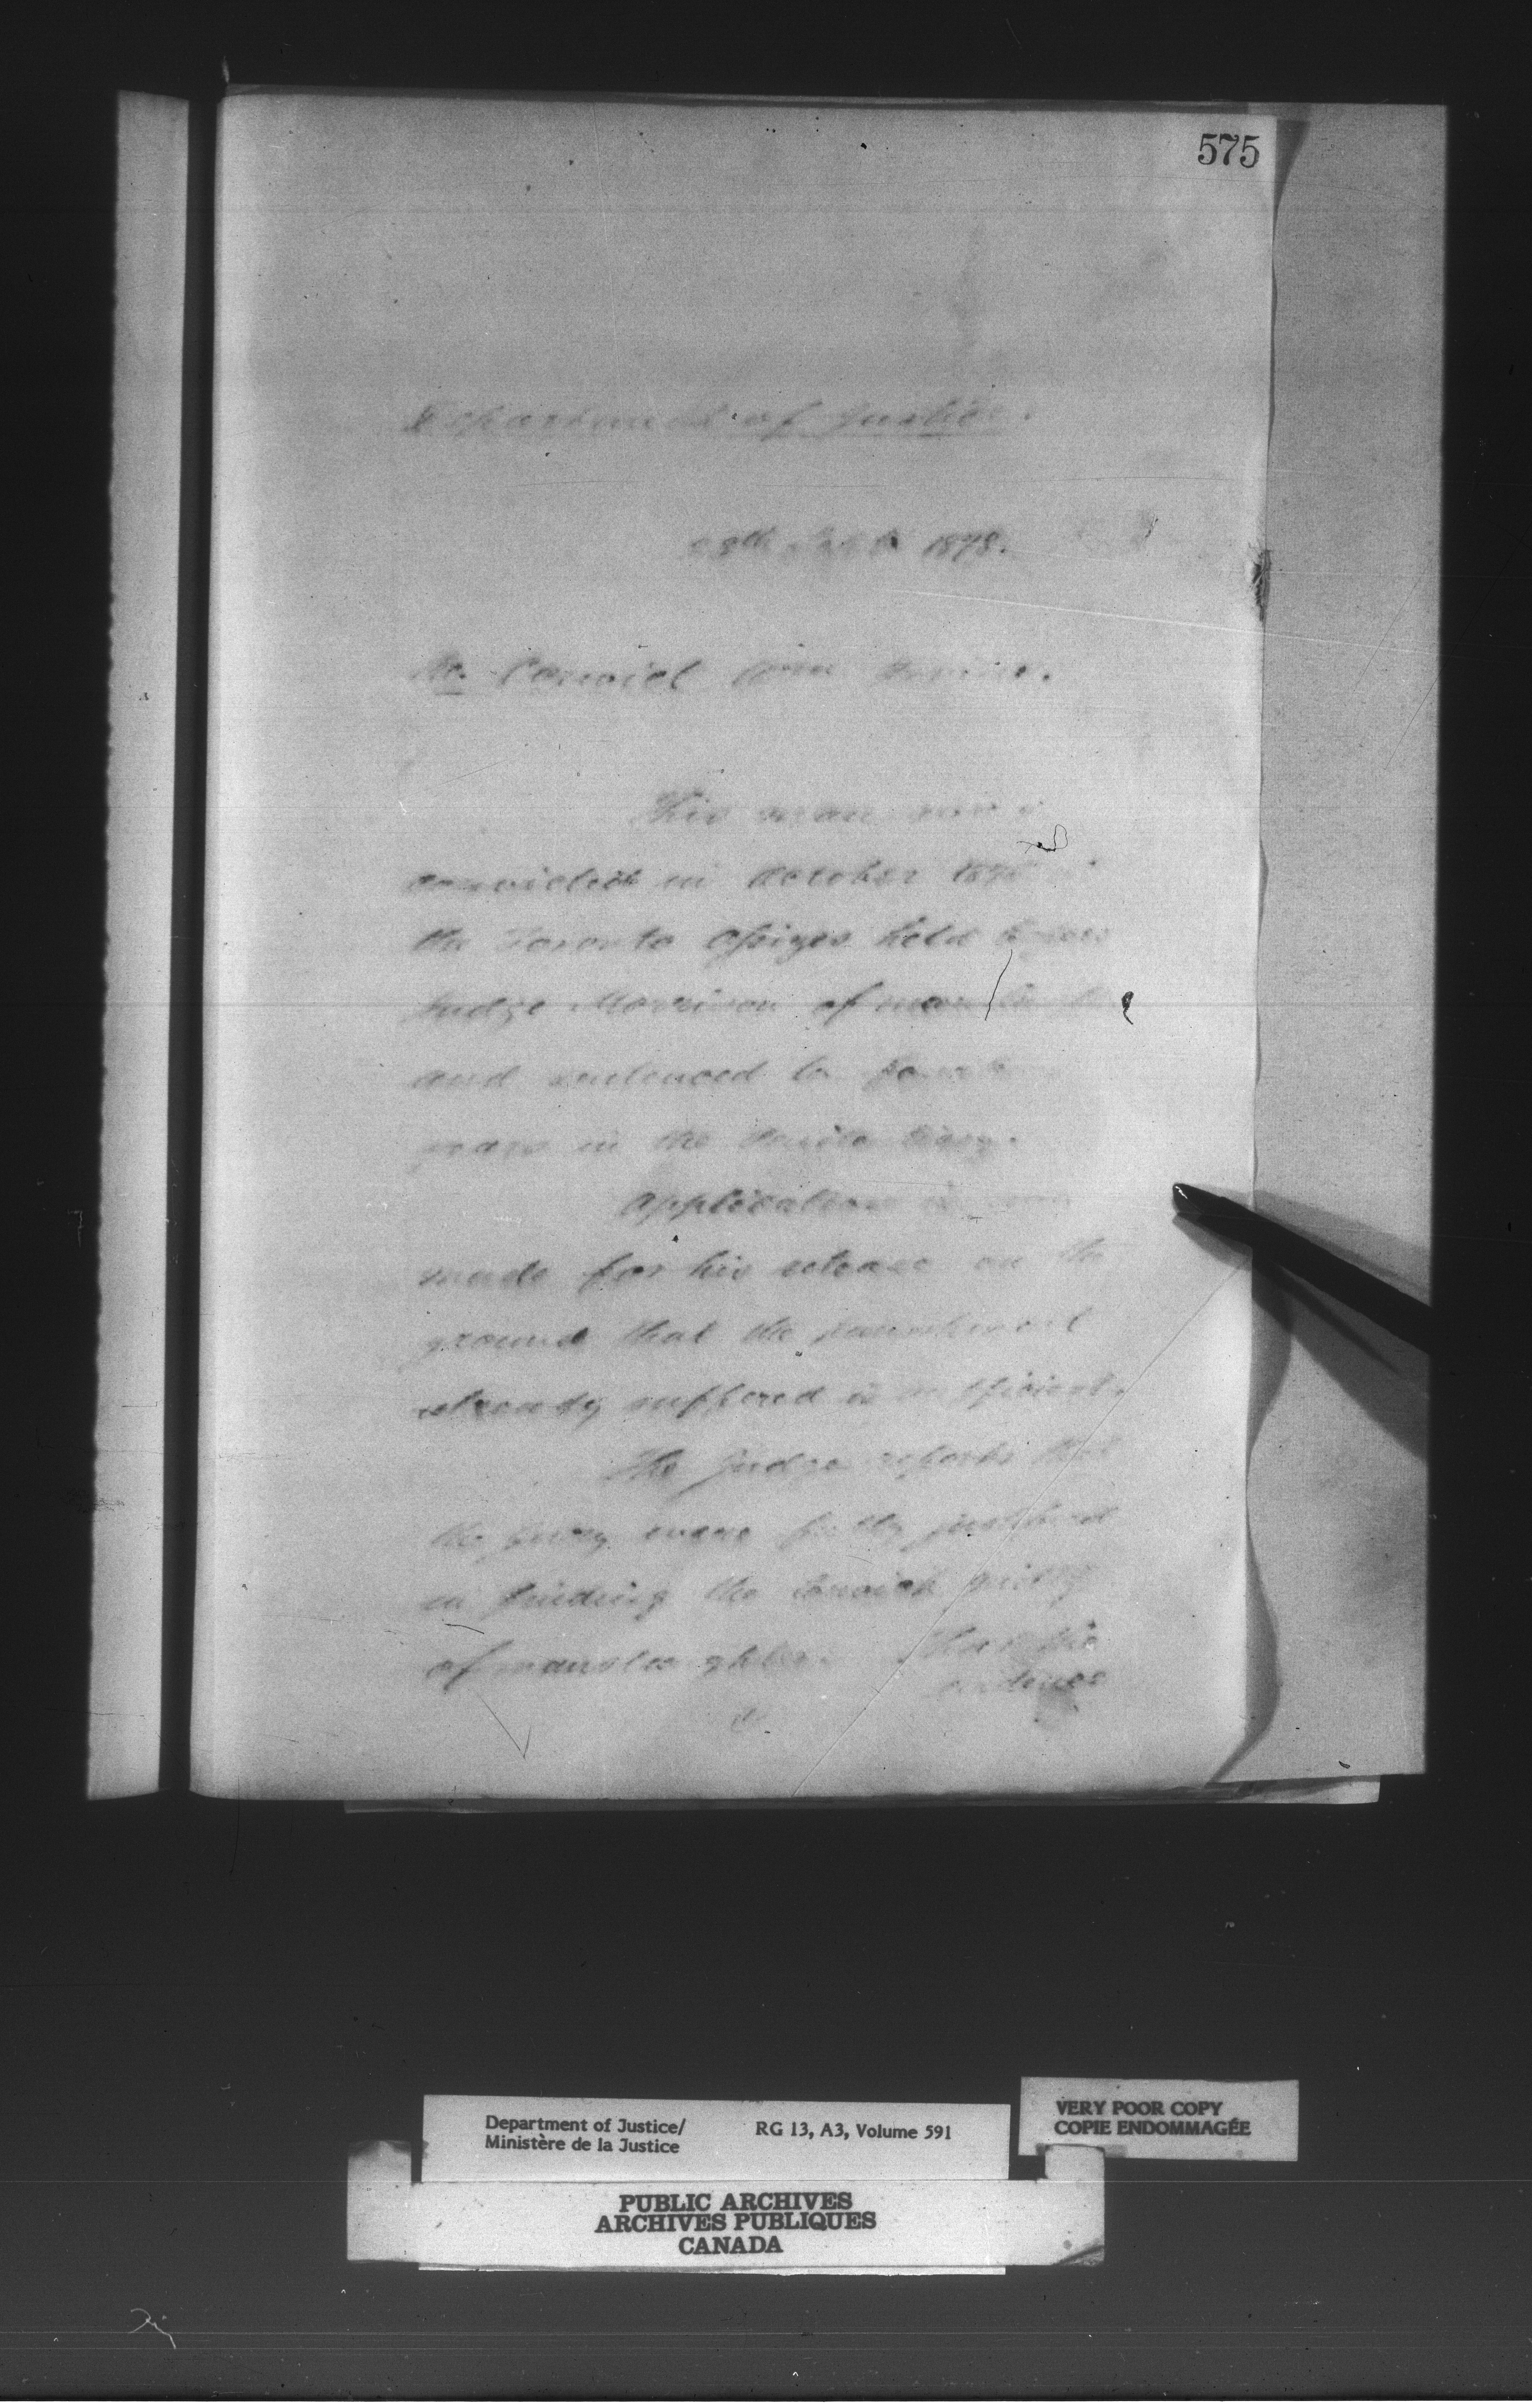 575
Department of Justice.
28th Sept 1878.
Re. Convict Wm
This man was
convicted in October 187
the Toronto Assizes held before
Judge Morrison of
and sentenced to
years in the Penitentiary.
Application is
made for his release on the
ground that the punishment
already suffered is sufficient.
The Judge reports that
the jury were fully justified
in finding the convict guilty
of manslaughter. That the
evidence
Department of Justice/
Ministère de la Justice
RG 13, A3, Volume 591
VERY POOR COPY
COPIE ENDOMMAGÉE
PUBLIC ARCHIVES
ARCHIVES PUBLIQUES
CANADA